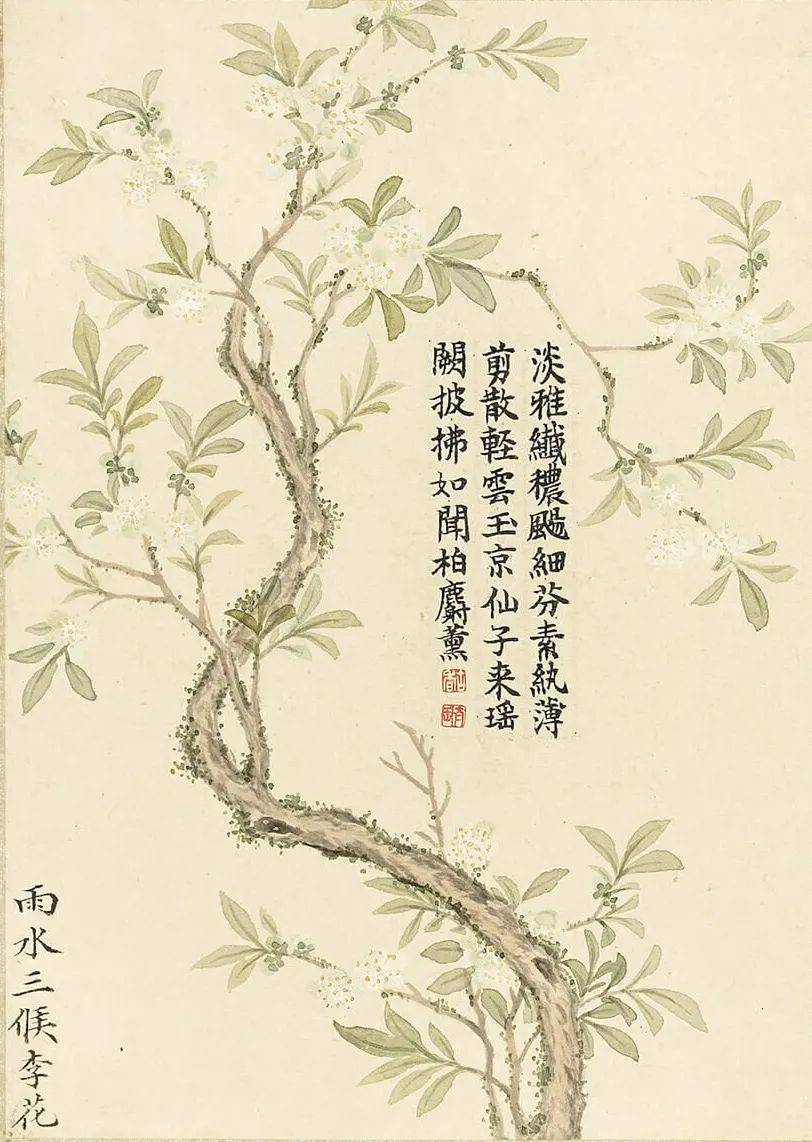 淡雅纎穠颺細芬素紈薄
剪散軽雲玉京仙子来瑶
闕披拂如聞柏麝薰
雨水三候李花